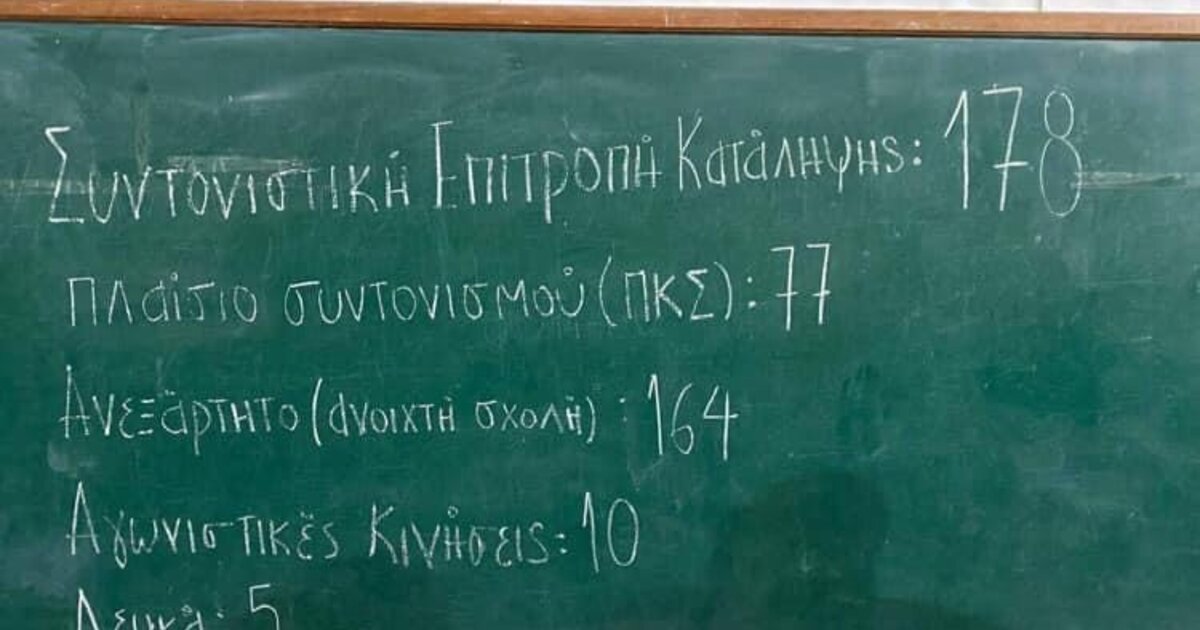 Συντονιστική Επιτροπή Κατάληψης: 178
Πλαίσιο συντονισμού (ΠΚΣ): 77
Ανεξάρτητο (ανοιχτή σχολή) : 164
Αγωνιστικές Κινήσεις: 10
Λευκά: 5